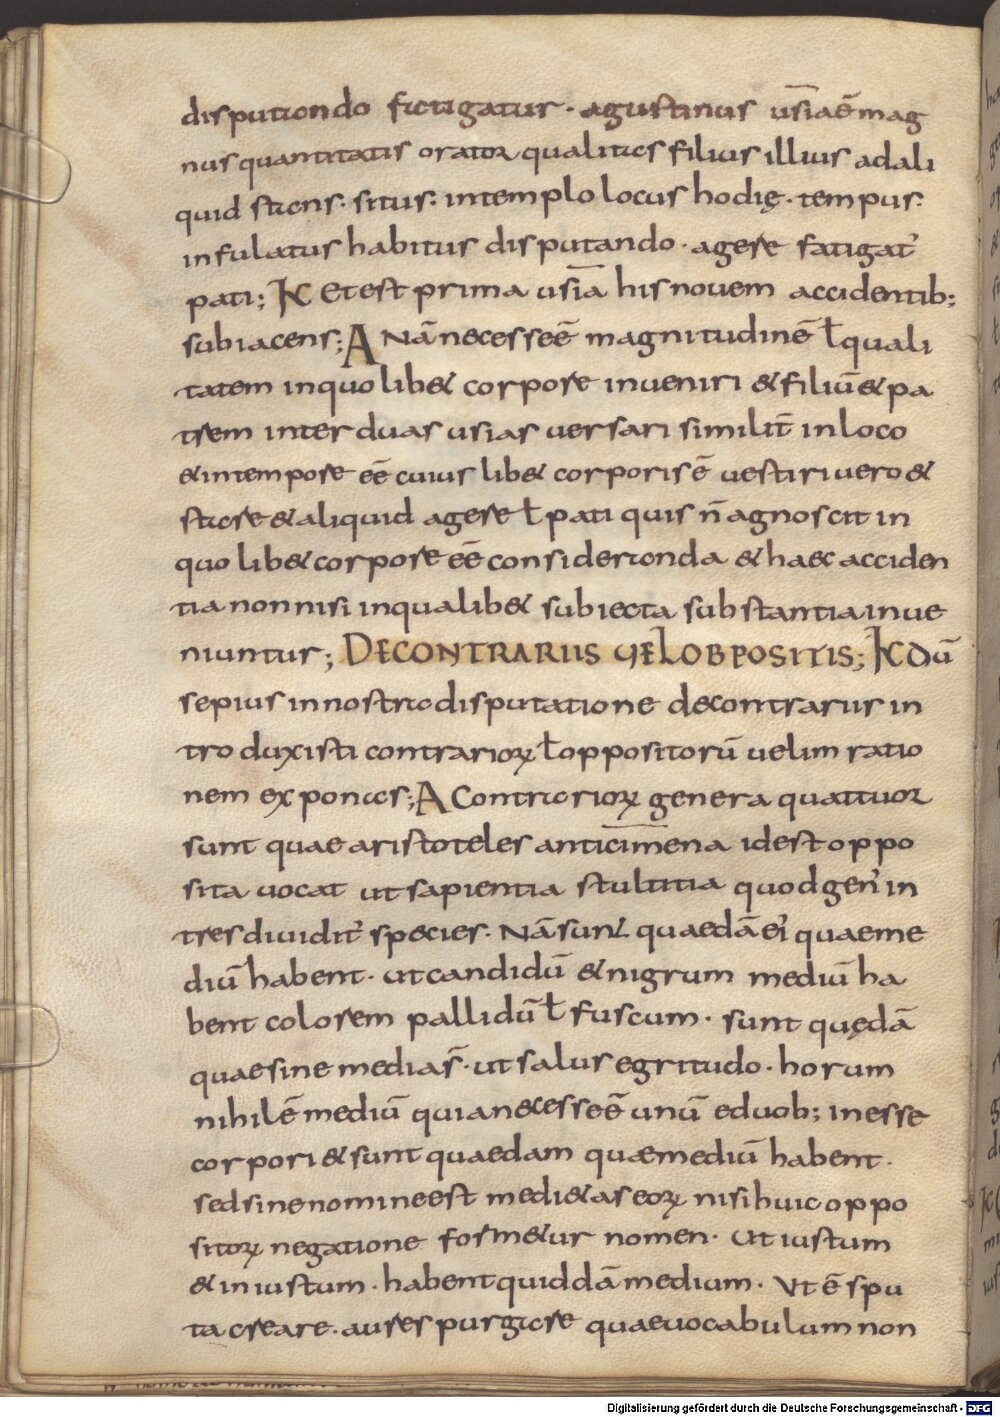 disputando fatigatur · agustinus usīa ē mag
nus quantitatis orator qualitas filius illius ad ali
quid stans · situs · in templo locus hodię · tempus ·
infulatus habitus disputando · agere fatigat᷑
pati ; K Et est prima usīa his novem accidentib;
subiacens ; A Nā necesse ē magnitudinē ƚ quali
tatem in quolib& corpore inveniri & filiū & pa
trem inter duas usias versari similit̄ in loco
& in tempore eē cuiuslib& corporis ē vestiri vero &
stare & aliquid agere ƚ pati quis n̄ agnoscit in
quolib& corpore eē consideranda & haec acciden
tia non nisi in qualib& subiecta substantia inve
niuntur ; DE CONTRARIIS VEL OBPOSITIS ; K Dū
sepius in nostra disputatione de contrariis in
troduxisti contrarioꝝ ƚ oppositorū velim ratio
nem exponas ; A Contrarioꝝ genera quattuor
sunt quae aristoteles anticimena id est oppo
sita vocat ut sapientia stultitia quod gen᷑ in
tres dividit᷑ species · Nā sunt quaedā ei᷑ quae me
diū habent · ut candidū & nigrum mediū ha
bent colorem pallidū ƚ fuscum · sunt quędā
quae sine media s̄ · ut salus egritudo · horum
nihil ē mediū quia necesse ē unū e duob; inesse
corpori & sunt quaedam quae mediū habent ·
sed sine nomine est medi&as eoꝝ nisi huic oppo
sitoꝝ negatione form&ur nomen · Ut iustum
& iniustum · habent quiddā medium · Ut ē spu
ta creare · aures purgare quae vocabulum non
Digitalisierung gefördert durch die Deutsche Forschungsgemeinschaft - DFG